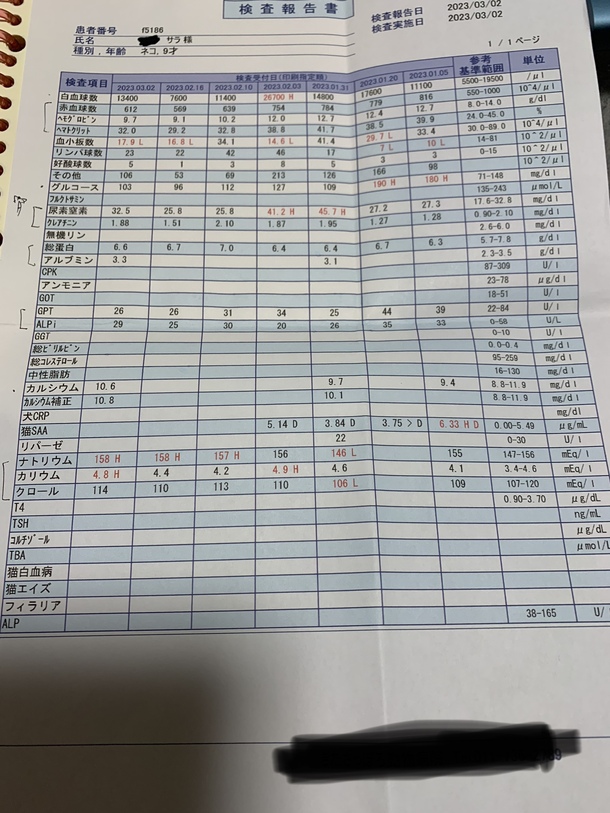 検査報告書
検査報告日 2023/03/02
検査実施日 2023/03/02
患者番号 f5186
氏名 サラ 様
種別,年齢 ネコ, 9才
1 / 1 ページ
検査項目 検査受付日(印刷指定順) 参考基準範囲 単位
2023.03.02 2023.02.16 2023.02.10 2023.02.03 2023.01.31 2023.01.20 2023.01.05
白血球数 13400 7600 11400 26700 H 14800 17600 11100 5500-19500 /μl
赤血球数 612 569 639 754 784 779 816 550-1000 10^4/μl
ヘモグロビン 9.7 9.1 10.2 12.0 12.7 12.4 12.7 8.0-14.0 g/dl
ヘマトクリット 32.0 29.2 32.8 38.8 41.7 38.5 39.9 24.0-45.0 %
血小板数 17.9 L 16.8 L 34.1 14.6 L 41.4 29.7 L 33.4 30.0-89.0 10^4/μl
リンパ球数 23 22 42 46 17 7 L 10 L 14-81 10^2/μl
好酸球数 5 1 3 8 5 3 3 0-15 10^2/μl
その他 106 53 69 213 126 166 98 10^2/μl
グルコース 103 96 112 127 109 190 H 180 H 71-148 mg/dl
フルクトサミン 135-243 μmol/L
尿素窒素 32.5 25.8 25.8 41.2 H 45.7 H 27.2 27.3 17.6-32.8 mg/dl
クレアチニン 1.88 1.51 2.10 1.87 1.95 1.27 1.28 0.90-2.10 mg/dl
無機リン 2.6-6.0 mg/dl
総蛋白 6.6 6.7 7.0 6.4 6.4 6.7 6.3 5.7-7.8 g/dl
アルブミン 3.3 3.1 2.3-3.5 g/dl
CPK 87-309 U/l
アンモニア 23-78 μg/dl
GOT 18-51 U/l
GPT 26 26 31 34 25 44 39 22-84 U/l
ALPi 29 25 30 20 26 35 33 0-58 U/L
GGT 0-10 U/l
総ビリルビン 0.0-0.4 mg/dl
総コレステロール 95-259 mg/dl
中性脂肪 16-130 mg/dl
カルシウム 10.6 9.7 9.4 8.8-11.9 mg/dl
カルシウム補正 10.8 10.1 8.8-11.9 mg/dl
犬CRP mg/dl
猫SAA 5.14 D 3.84 D 3.75 > D 6.33 H D 0.00-5.49 μg/mL
リパーゼ 22 0-30 U/l
ナトリウム 158 H 158 H 157 H 156 146 L 155 147-156 mEq/l
カリウム 4.8 H 4.4 4.2 4.9 H 4.6 4.1 3.4-4.6 mEq/l
クロール 114 110 113 110 106 L 109 107-120 mEq/l
T4 0.90-3.70 μg/dL
TSH ng/mL
コルチゾール μg/dL
TBA μmol/L
猫白血病
猫エイズ
フィラリア
ALP 38-165 U/